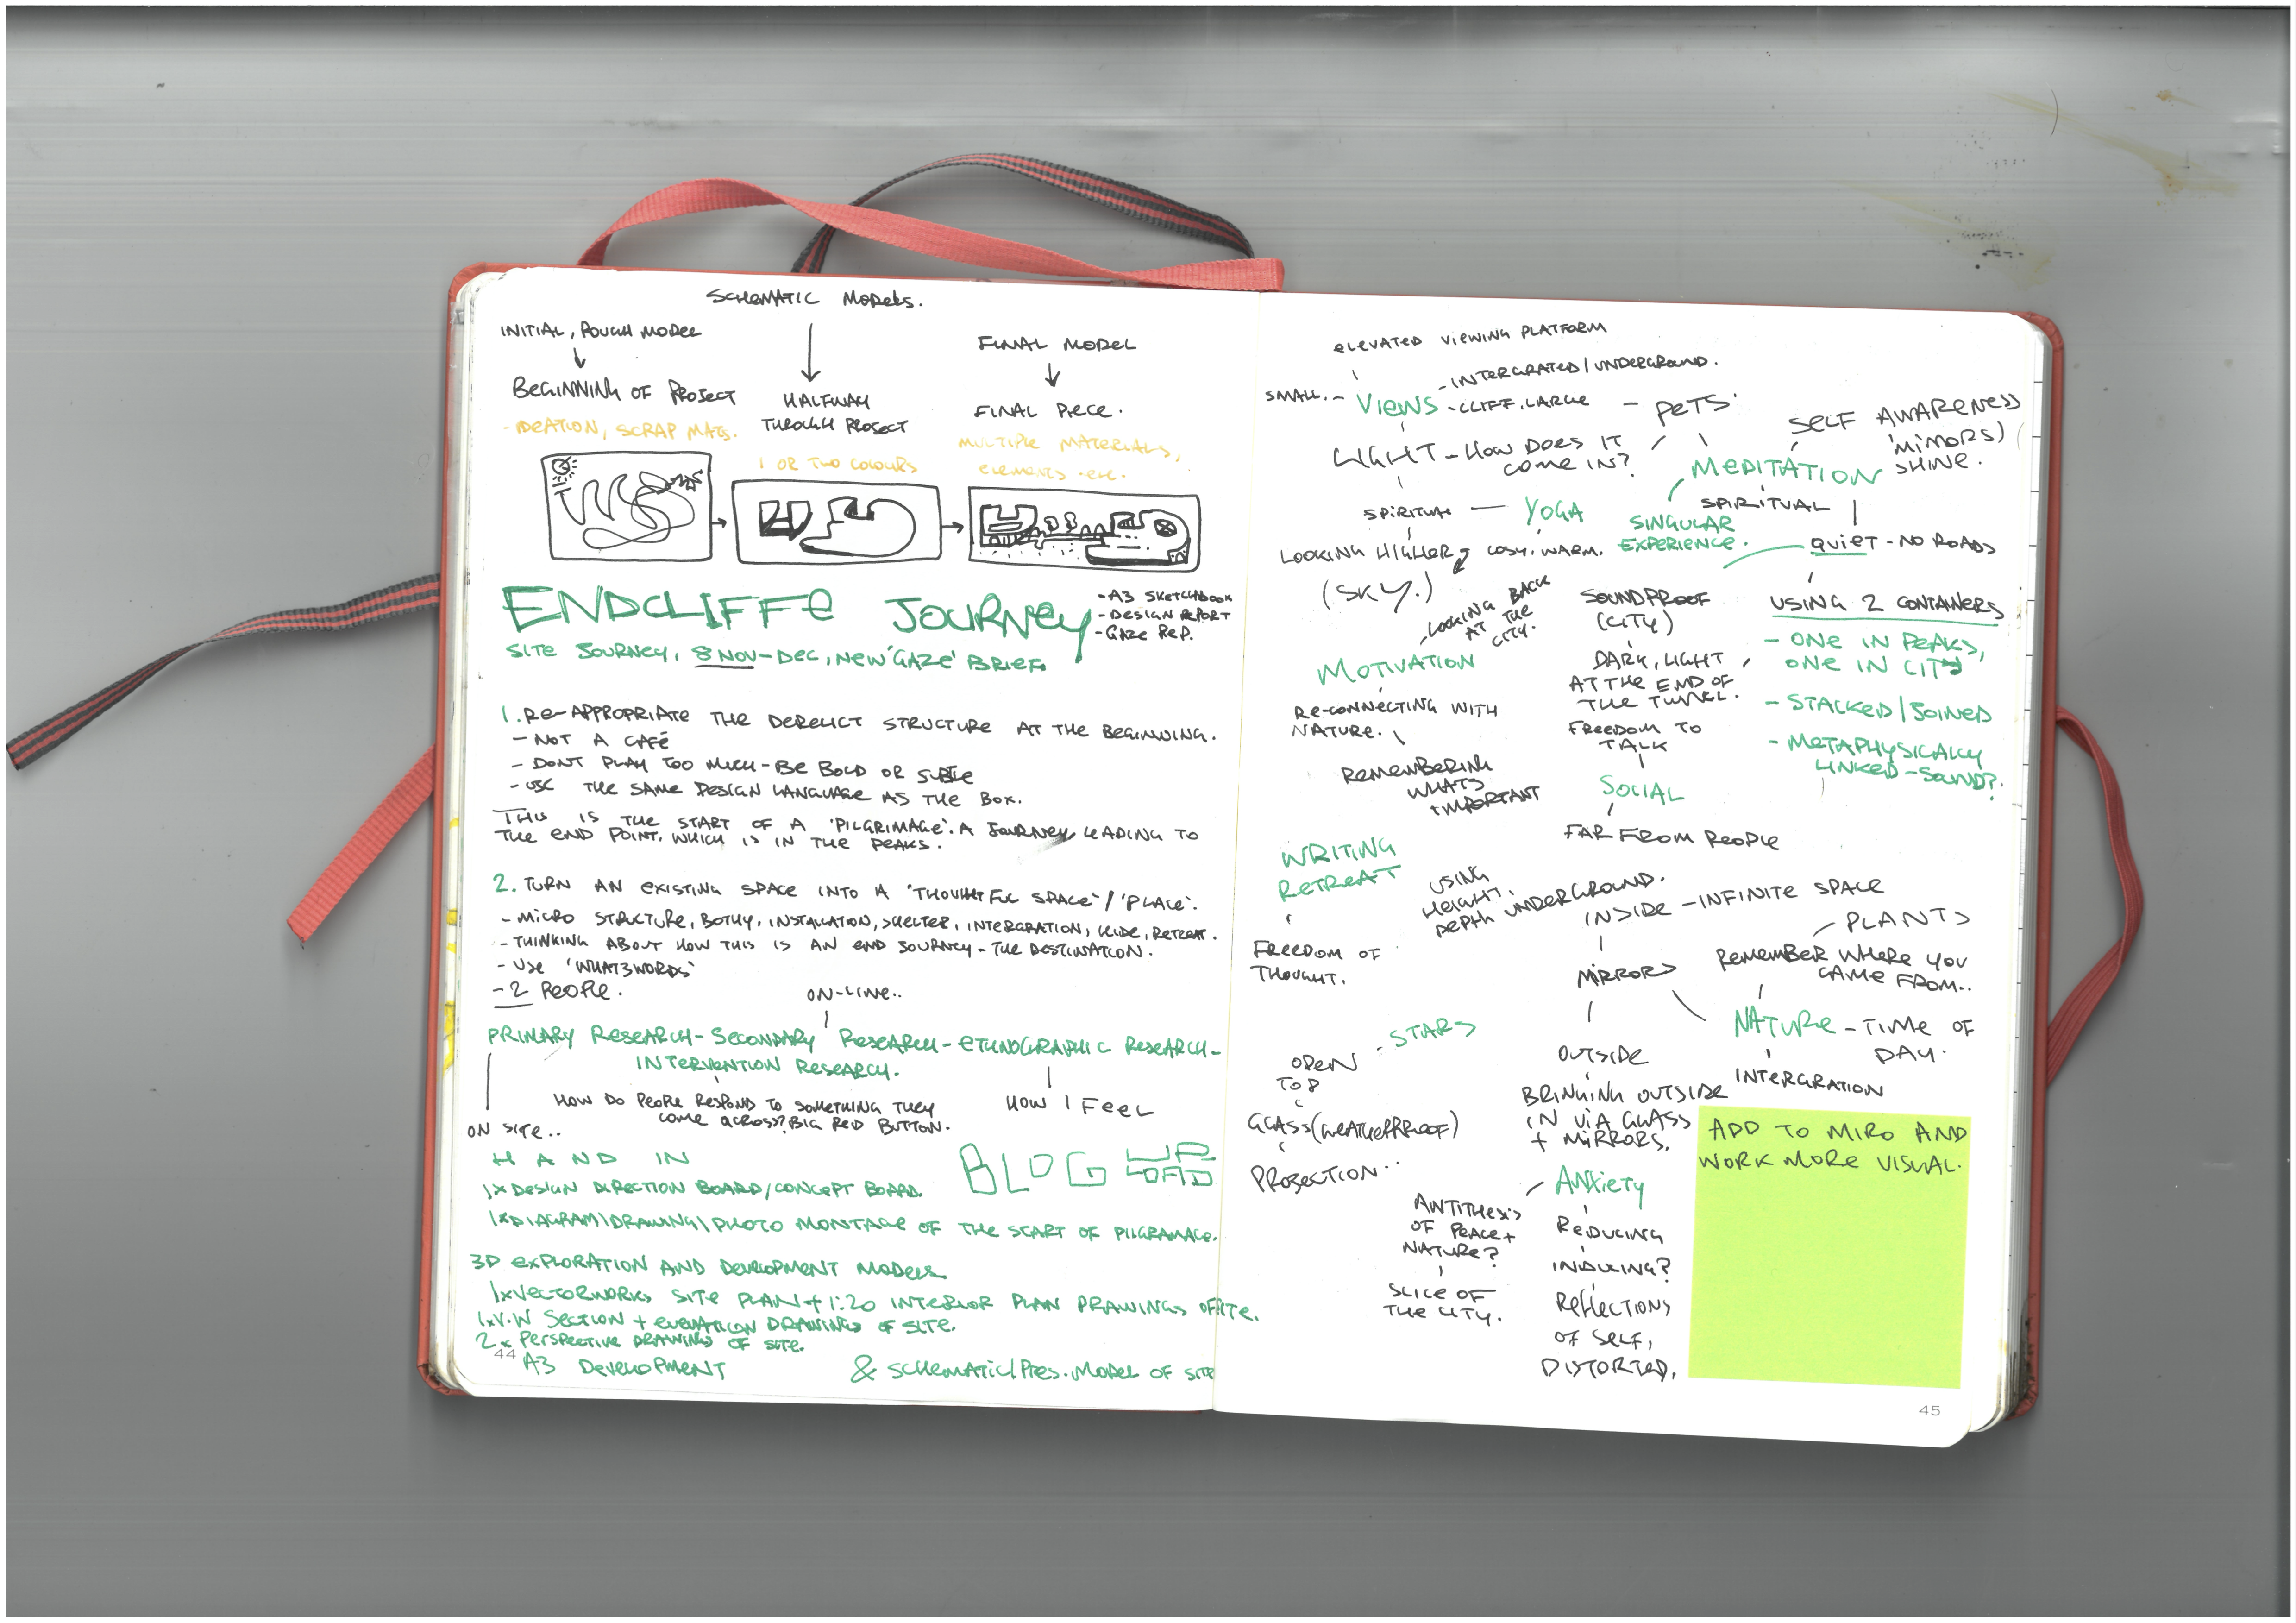 SCHEMATIC MODELS.
INITIAL, ROUGH MODEL
BEGINNING OF PROJECT
- IDEATION, SCRAP MATS.
HALFWAY
THROUGH PROJECT
1 OR TWO COLOURS
FINAL MODEL
FINAL PIECE.
MULTIPLE MATERIALS,
ELEMENTS etc.
ENDCLIFFE JOURNEY
- A3 SKETCHBOOK
- DESIGN REPORT
- GAZE REP.
SITE JOURNEY, 8 NOV - DEC, NEW 'GAZE' BRIEF.
1. RE-APPROPRIATE THE DERELICT STRUCTURE AT THE BEGINNING.
- NOT A CAFÉ
- DONT PLAY TOO MUCH - BE BOLD OR SUBTLE
- USE THE SAME DESIGN LANGUAGE AS THE BOX.
THIS IS THE START OF A 'PILGRIMAGE'. A JOURNEY LEADING TO
THE END POINT, WHICH IS IN THE PEAKS.
2. TURN AN EXISTING SPACE INTO A 'THOUGHTFUL SPACE' / 'PLACE'.
- MICRO STRUCTURE, BOTHY, INSTALLATION, SHELTER, INTERGRATION, HIDE, RETREAT.
- THINKING ABOUT HOW THIS IS AN END JOURNEY - THE DESTINATION.
- USE 'WHAT3WORDS'
- 2 PEOPLE.
ON-LINE..
PRIMARY RESEARCH - SECONDARY RESEARCH - ETHNOGRAPHIC RESEARCH -
INTERVENTION RESEARCH.
HOW DO PEOPLE RESPOND TO SOMETHING THEY
COME ACROSS? BIG RED BUTTON.
HOW I FEEL
ON SITE..
HAND IN
BLOG UPLOAD
1x DESIGN DIRECTION BOARD/CONCEPT BOARD.
1x DIAGRAM\DRAWING\PHOTO MONTAGE OF THE START OF PILGRAMAGE.
3D EXPLORATION AND DEVELOPMENT MODELS
1x VECTORWORKS SITE PLAN + 1:20 INTERIOR PLAN DRAWINGS OF SITE.
1x V.W SECTION + ELEVATION DRAWINGS OF SITE.
2x PERSPECTIVE DRAWINGS OF SITE.
44
A3 DEVELOPMENT & SCHEMATIC/PRES. MODEL OF SITE
ELEVATED VIEWING PLATFORM
- INTERGRATED / UNDERGROUND.
SMALL. - VIEWS - CLIFF, LARGE
- PETS.
LIGHT - HOW DOES IT
COME IN?
SELF AWARENESS
(MIRRORS)
SHINE.
MEDITATION
SPIRITUAL
SPIRITUAL — YOGA
SINGULAR
EXPERIENCE.
LOOKING HIGHER
(SKY.)
COSY, WARM.
QUIET - NO ROADS
LOOKING BACK
AT THE
CITY.
SOUNDPROOF
(CITY)
USING 2 CONTAINERS
- ONE IN PEAKS,
ONE IN CITY
- STACKED / JOINED
- METAPHYSICALLY
LINKED - SOUND?
MOTIVATION
DARK, LIGHT
AT THE END OF
THE TUNNEL.
RE-CONNECTING WITH
NATURE.
FREEDOM TO
TALK
REMEMBERING
WHATS
IMPORTANT
SOCIAL
FAR FROM PEOPLE
WRITING
RETREAT
USING
HEIGHT,
DEPTH UNDERGROUND.
INSIDE - INFINITE SPACE
- PLANTS
FREEDOM OF
THOUGHT.
MIRRORS
REMEMBER WHERE YOU
CAME FROM..
NATURE - TIME OF
DAY.
INTERGRATION
STARS
OPEN
TOP
GLASS (WEATHERPROOF)
PROJECTION..
OUTSIDE
BRINGING OUTSIDE
IN VIA GLASS
+ MIRRORS.
ANXIETY
ANTITHESIS
OF PEACE +
NATURE?
SLICE OF
THE CITY.
REDUCING
INDUCING?
REFLECTIONS
OF SELF,
DISTORTED.
ADD TO MIRO AND
WORK MORE VISUAL.
45